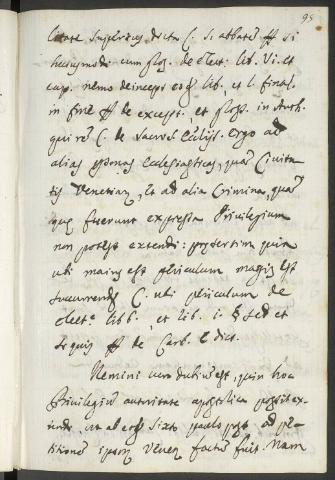 95
citate superius dicta C. Si abbatem ff Si
huiusmodi cum glos. de elect. lib. Vi. et
cap. nemo deinceps eod. lib. et l. final.
in fine ff de except. et gloss. in Auth.
qui res C. de sacros. Ecclesijs. Ergo ad
alias personas Ecclesiasticas, quam Civita
tis Venetiarum, Et ad alia Crimina, quam
quæ fuerunt expressa Privilegium
non potest extendi: præsertim quia
ubi maius est periculum magis est
succurrendum C. ubi periculum de
elect.e lib. 6. et lib. i. § sed et
si quis ff de Carb. Edict.
Nemini vero dubium est, quin hoc
Privilegium autoritate apostolica possit ex-
ab eodem Sixto paulo post ad pe-
titionem ipsorum Venetorum factum fuit. Nam